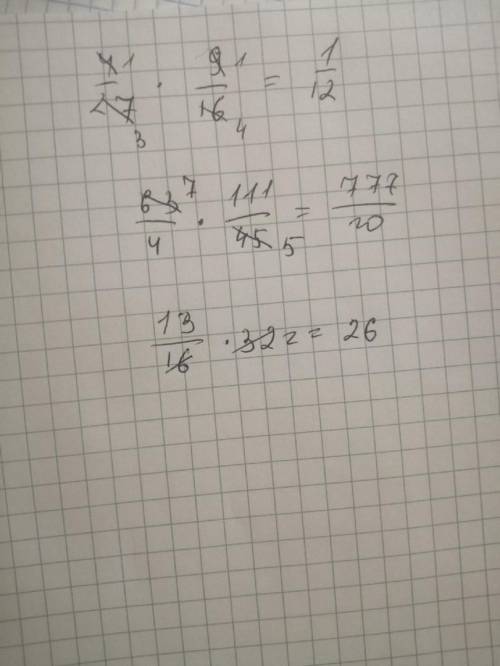 4̶ 1/2̶7̶ 3 · 9̶ 1/1̶6̶ 4 = 1/12
6̶3̶ 7/4 · 111/4̶5̶ 5 = 777/20
13/1̶6̶ · 3̶2̶ 2 = 26